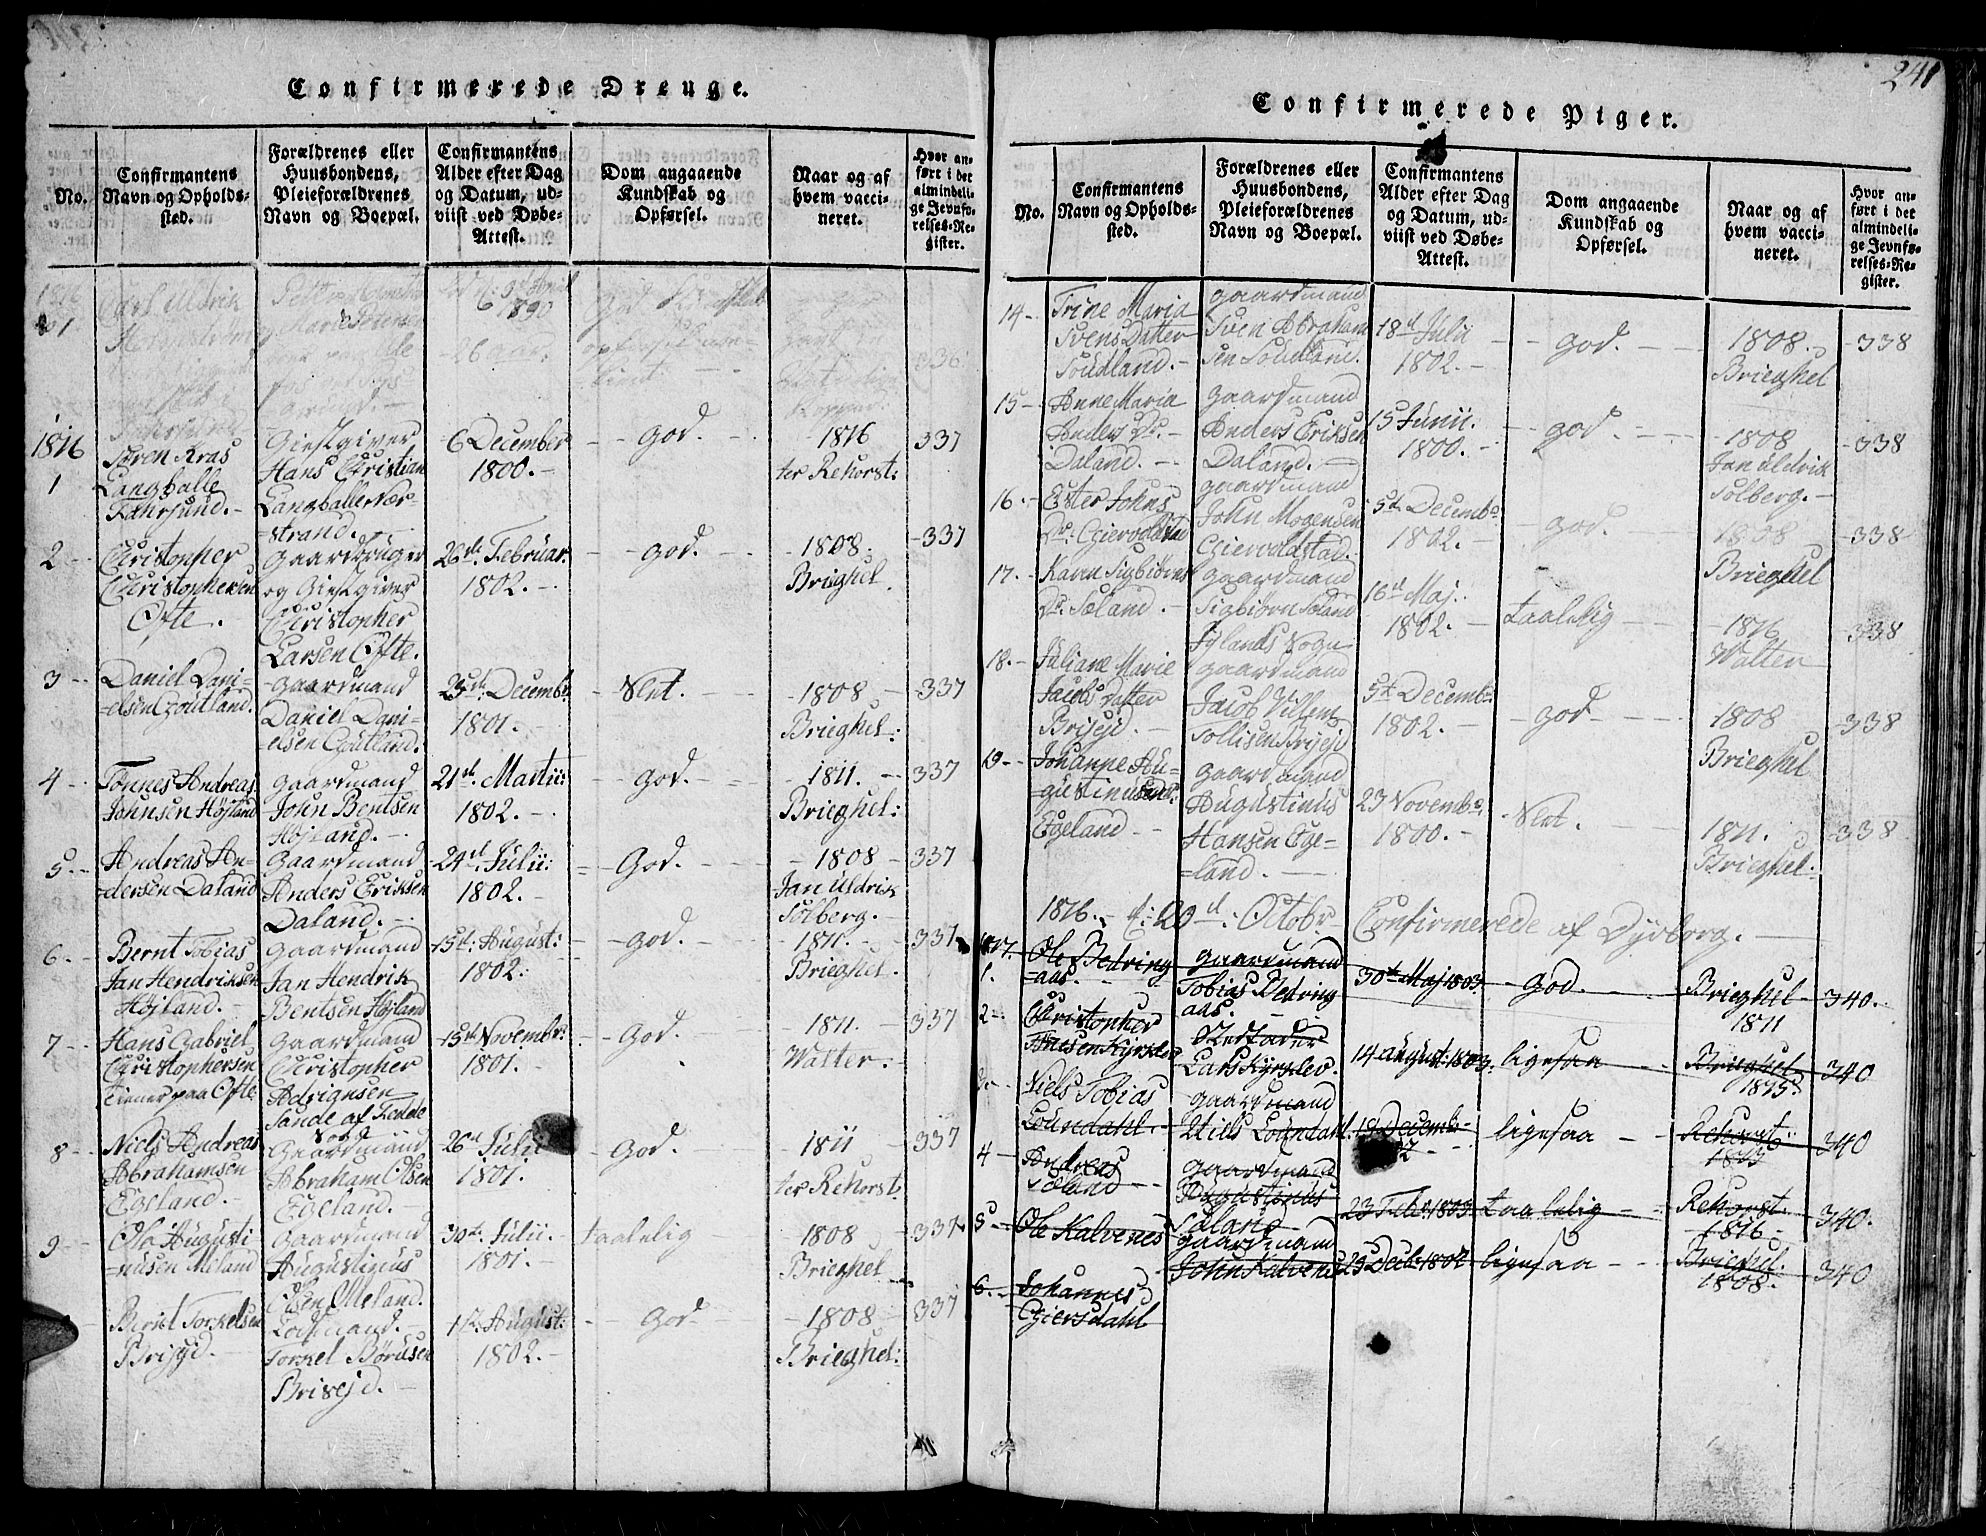 Confirmerede Drenge.
No.
Confirmantens Navn og Opholds-sted.
Forældrenes eller Huusbondens, Pleieforældrenes Navn og Boepæl.
Confirmantens Alder efter Dag og Datum, ud-viist ved Døbe-Attest.
Dom angaaende Kundskab og Opførsel.
Naar og af hvem vacci-neret.
Hvor an-ført i det almindeli-ge Jevnfø-relses-Re-gister.
1
Carl Uldrik
1890
26
336
1816
1
Søren Kras
Langballe
Fahrsund.-
Giestgiver
Hans Christian
Langballe Nær-
strand.
6 December
1800.-
God.
1816
ter Rehorst:
337
2
Christopher
Christophersen
Ofte.
Gaardbruger
og Giestgiver
Christopher
Larsen Ofte.
26de Februar.
1802.-
God.
1808.
Brieghel
337
3
Daniel Dani-
elsen Goutland.
Gaardmand
Daniel Dani-
elsen Goutland.
23de: Decembr
1801.-
Slet.
1808
Brieghel:
337
4
Tønnes Andreas
Johnsen Höjland
Gaardmand
John Bentsen
Höjland.-
21de: Martii:
1802.-
God.
1811.
Brieghel:
337
5
Andreas An-
dersen Daland
Gaardmand
Anders Eriksen
Daland.-
24de Julii:
1802.-
God.
1808
Jan Uldrik
Solberg.-
337
6
Bernt Tobias
Jan Hendriksen
Höjland.-
Gaardmand
Jan Hendrik
Bentsen Höjland
15de: August:
1802:
God.
1811.
Brieghel.
337
7
Hans Gabriel
Christophersen
tiener paa Ofte
Gaardmand
Christopher
Adriansen
Sande af Hedde
Sogn
15de Novembr:
1801.
God.
1811.
Walter.
337
8
Niels Andreas
Abrahamsen
Egeland.-
Gaardmand
Abraham Olsen
Egeland.-
26de Julii
1801.
God.
1811
ter Rehorst:
337
9
Ola Augusti
nusen Meland
Gaardmand
Augustinus
Olsen Meland.
30te: Julii.
1801.-
taalelig
1808
Brieghel
337
Beriet Torkelsen
Brisejd.-
Lodsmand.-
Torkel Børusen
Brisejd.-
1te: August:
1802.-
God
1808
Brieghel:
337
241
Confirmerede Piger.
No.
Confirmantens Navn og Opholds-sted.
Forældrenes eller Huusbondens, Pleieforældrenes Navn og Boepæl.
Confirmantens Alder efter Dag og Datum, ud-viist ved Døbe-Attest.
Dom angaaende Kundskab og Opførsel.
Naar og af hvem vacci-neret.
Hvor an-ført i det almindeli-ge Jevnfø-relses-Re-gister.
14
Trine Maria
Svens Datter
Soudland.-
gaardmand
Sven Abraham
sen Soudland.
18de Julii
1802.-
god.
1808.
Brieghel
338
15
Anne Maria
Anders Dr.
Daland.-
Gaardmand
Anders Eriksen
Daland.
15 Junii.
1800.-
god.
1808
Jan Uldrik
Solberg.-
338
16.
Ester Johns
Dr: Gjervoldstad
gaardmand
John Mogensen
Gjervoldstad.
5te Decembr
1802.-
god.
1808
Brieghel
338
17.
Karen Sigbiørns
Dr. Søland.-
gaardmand
Sigbiørn Søland
Fjelands Sogn
16de Maj.
1802.-
taalelig
1816
Walter
338
18.
Juliane Marie
Jacobs Datter
Brisejd.-
gaardmand
Jacob Villem
Tollisen Brisejd
5te Decembr
1802.-
god
1808
Brieghel
338
19
Johanne Au-
gustinus Dr.
Egeland
Gaardmand
Augustinus
Hansen Ege-
land.
23 Novembr
1800.-
Slet.
1811.
Brieghel.
338
1816.- d: 20de: Octobr Confirmerede af Dyrborg.
1817.
1.
Ole Bedring
aas.
gaardmand
Tobias Bedring
aas.
30te Maj 1803
God
Brieghel
1811
340.
2
Christopher
Kÿrslev
Lars Kÿrslev.
14 August: 1803.
ligesaa
Brieghel
1815.
340
3
Niels Tobias
Loundahl
gaardmand
Niels Loundahl.
19 Decembr
ligesaa
Rehorst:
1813
340
4
Andreas
Søland
gaardmand
Augustinus
Søland
23 Febr. 1803
taalelig
Rehorst.
1816
340.
5
Ole Kalvenes
gaardmand
John Kalvenes
23 Decbr 1802
ligesaa
Brieghel.
1808.
340
6.
Johannes
Gjersdahl